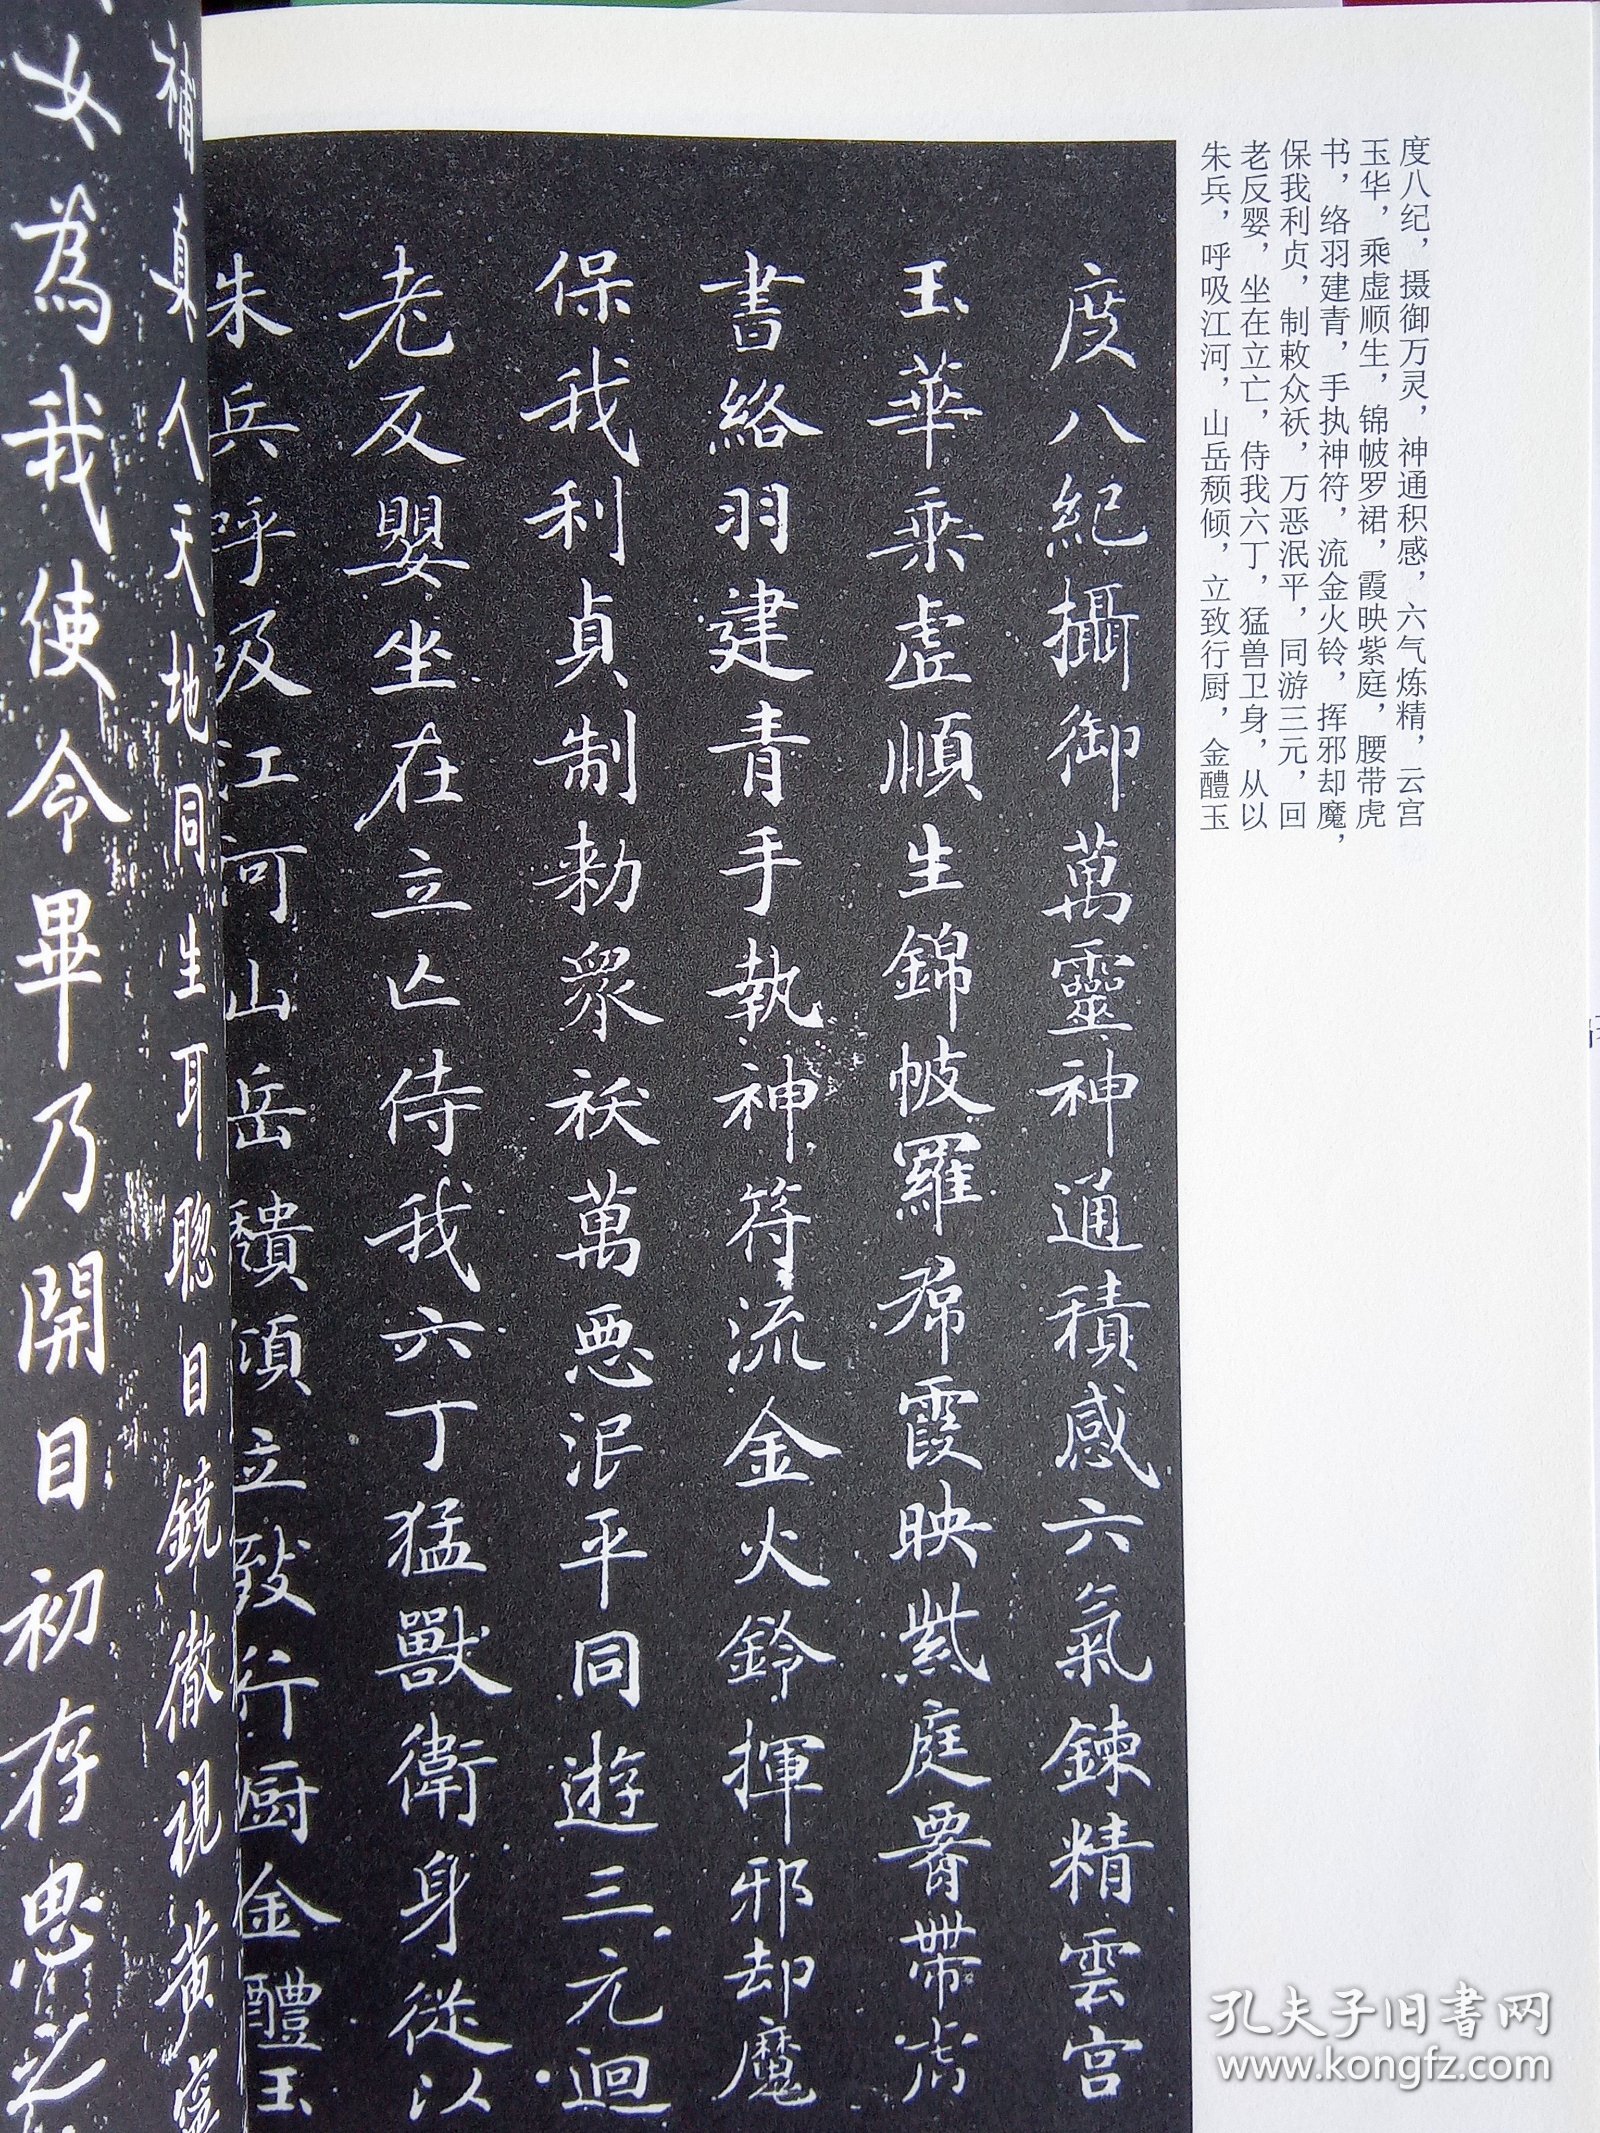 度八纪，摄御万灵，神通积感，六气炼精，云宫
玉华，乘虚顺生，锦帔罗裙，霞映紫庭，腰带虎
书，络羽建青，手执神符，流金火铃，挥邪却魔，
保我利贞，制敕众祅，万恶泯平，同游三元，回
老反婴，坐在立亡，侍我六丁，猛兽卫身，从以
朱兵，呼吸江河，山岳颓倾，立致行厨，金醴玉
度八紀攝御萬靈神通積感六氣鍊精雲宮
玉華乘虛順生錦帔羅帬霞映紫庭署帶虎
書絡羽建青手執神符流金火鈴揮邪却魔
保我利貞制勑眾祅萬惡泯平同遊三元迴
老反嬰坐在立亡侍我六丁猛獸衛身從以
朱兵呼吸江河山岳穨傾立致行厨金醴玉
補真人天地同生耳聰目鏡徹視黃寧
女為我使令畢乃開目初存思之
孔夫子旧书网
www.kongfz.com